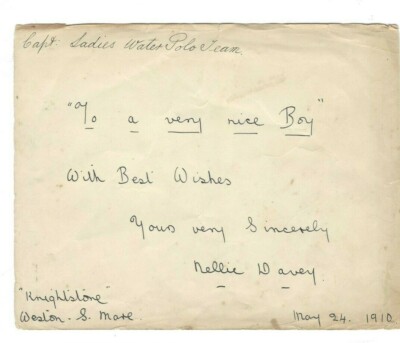 Capt. Ladies Water Polo Team.
"To a very nice Boy"
With Best Wishes
Yours very Sincerely
Nellie Davey.
"Knightstone"
Weston. S. Mare.
May 24. 1910